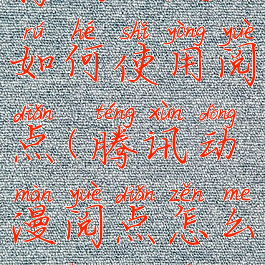 rú hé shǐ yòng yuè
如何使用阅
diǎn téng xùn dòng
点(腾讯动
màn yuè diǎn zěn me
漫阅点怎么